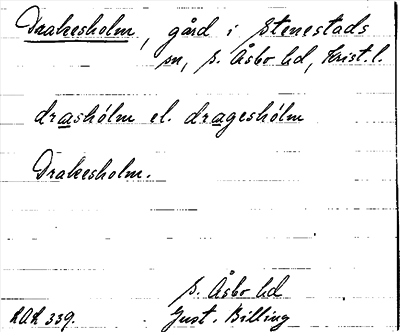 Drakesholm, gård i Stenestads
sn, s. Åsbo hd, Krist. l.
drashólm el. drageshólm
Drakesholm.
s. Åsbo hd
LAL 339. Just. Billing